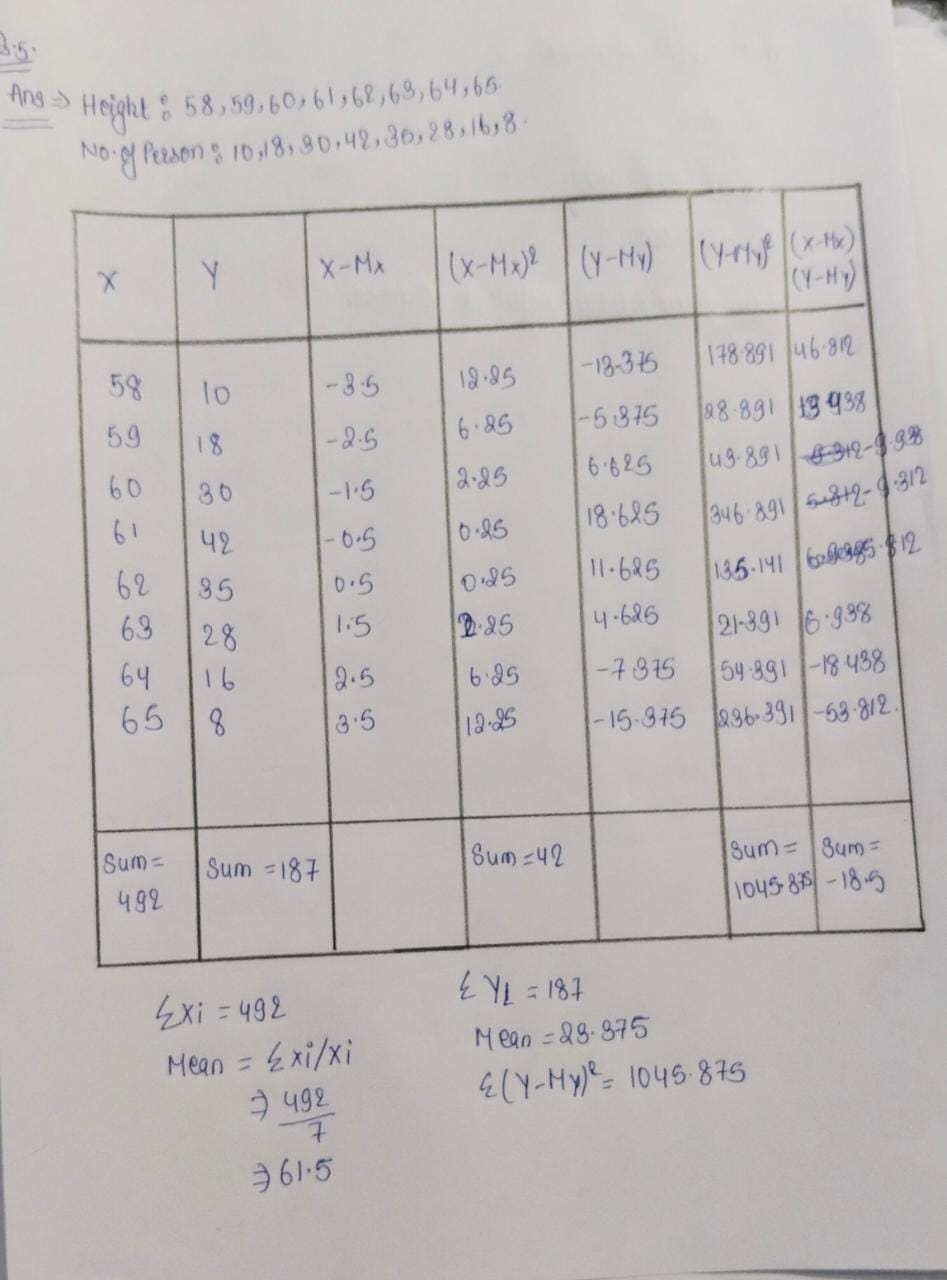 3.5.
Ans ⇒ Height : 58, 59, 60, 61, 62, 63, 64, 65.
No. of Person : 10, 18, 30, 42, 35, 28, 16, 8.
X Y X-Mx (X-Mx)² (Y-My) (Y-My)² (X-Mx) (Y-My)
58 10 -3.5 12.25 -13.375 178.891 46.812
59 18 -2.5 6.25 -5.375 28.891 13.438
60 30 -1.5 2.25 6.625 43.891 -9.938
61 42 -0.5 0.25 18.625 346.891 -9.312
62 35 0.5 0.25 11.625 135.141 5.812
63 28 1.5 2.25 4.625 21.391 6.938
64 16 2.5 6.25 -7.375 54.391 -18.438
65 8 3.5 12.25 -15.375 236.391 -53.812.
Sum = 492 Sum = 187 Sum = 42 Sum = 1045.875 Sum = -18.5
Σxi = 492
Mean = Σxi/xi
⇒ 492/7
⇒ 61.5
Σ Yi = 187
Mean = 23.375
Σ(Y-My)² = 1045.875